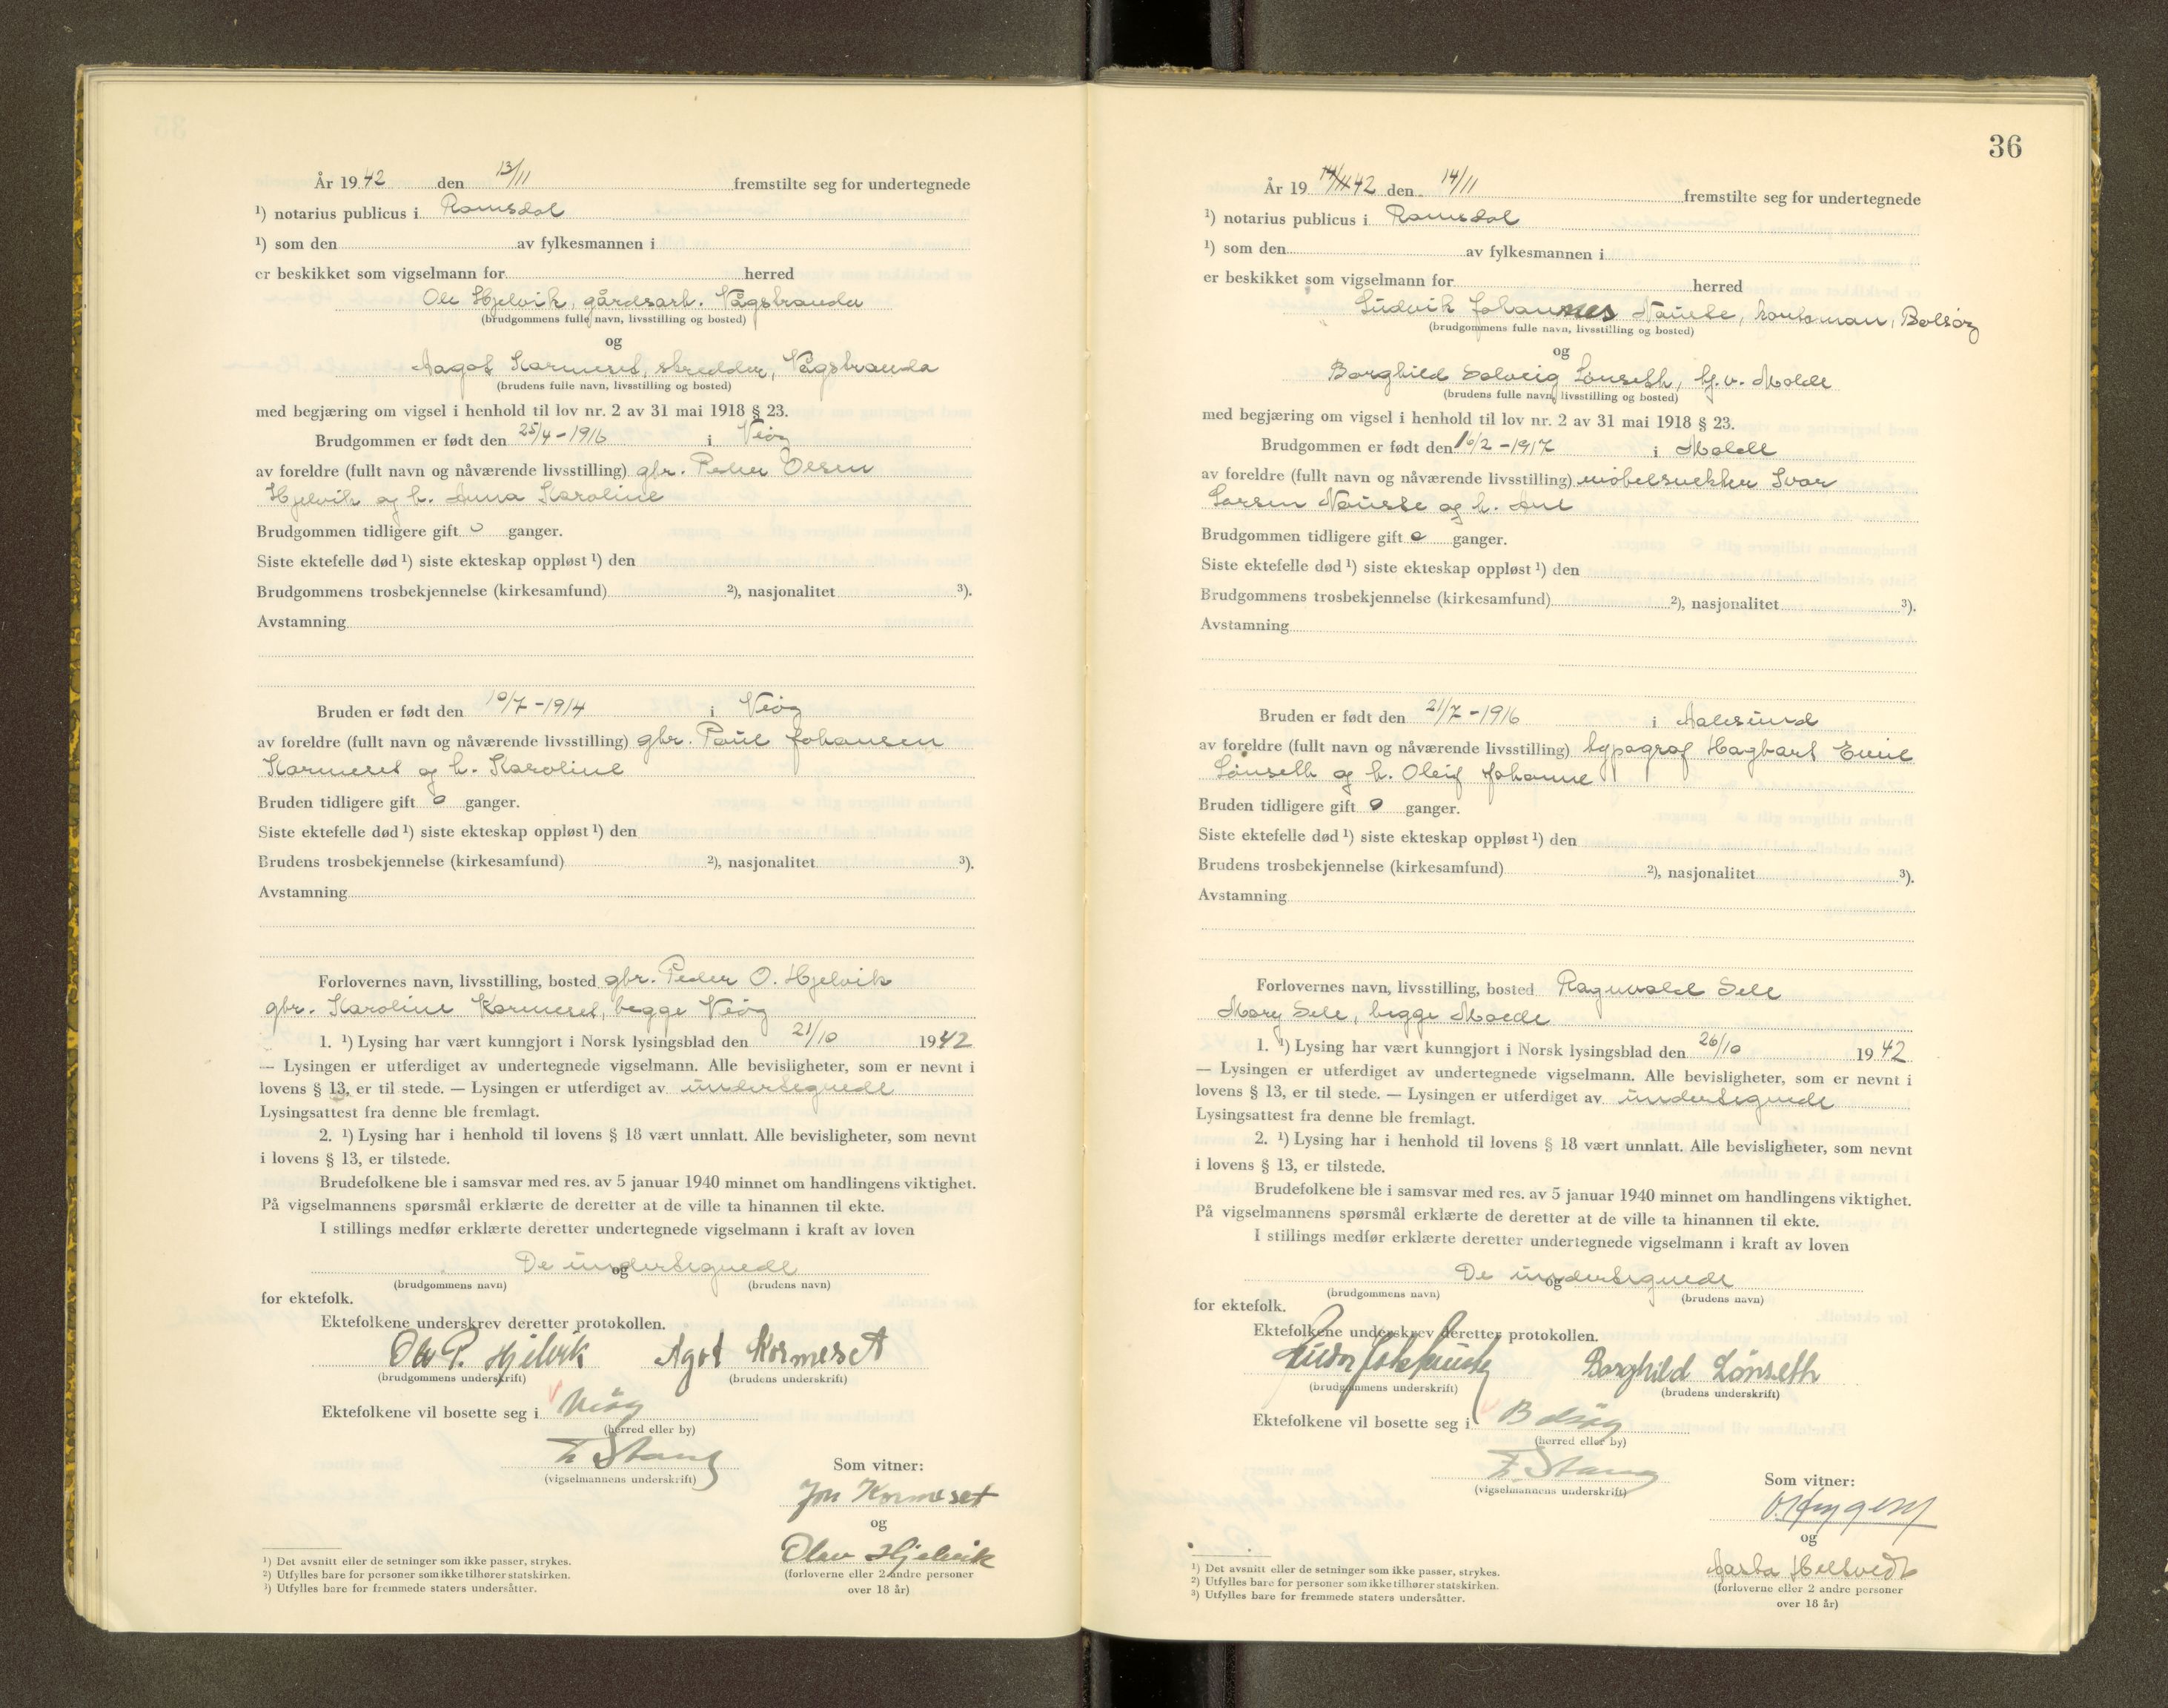 År 1942 den 13/11 fremstilte seg for undertegnede
¹) notarius publicus i Romsdal
¹) som den av fylkesmannen i
er beskikket som vigselmann for herred
Ole Hjelvik, gårdsarb. Vågstranda
(brudgommens fulle navn, livsstilling og bosted)
og
Aagot Kormeset, skredder, Vågstranda
(brudens fulle navn, livsstilling og bosted)
med begjæring om vigsel i henhold til lov nr. 2 av 31 mai 1918 § 23.
Brudgommen er født den 25/4-1916 i Veøy
av foreldre (fullt navn og nåværende livsstilling) gbr. Peder Olsen
Hjelvik og h. Anna Karoline
Brudgommen tidligere gift 0 ganger.
Siste ektefelle død ¹) siste ekteskap oppløst ¹) den
Brudgommens trosbekjennelse (kirkesamfund) ²), nasjonalitet ³).
Avstamning
Bruden er født den 10/7-1914 i Veøy
av foreldre (fullt navn og nåværende livsstilling) gbr. Paul Johansen
Kormeset og h. Karoline
Bruden tidligere gift 0 ganger.
Siste ektefelle død ¹) siste ekteskap oppløst ¹) den
Brudens trosbekjennelse (kirkesamfund) ²), nasjonalitet ³).
Avstamning
Forlovernes navn, livsstilling, bosted gbr. Peder O. Hjelvik
gbr. Karoline Kormeset, begge Veøy
1. ¹) Lysing har vært kunngjort i Norsk lysingsblad den 21/10 1942
— Lysingen er utferdiget av undertegnede vigselmann. Alle bevisligheter, som er nevnt i
lovens § 13, er til stede. — Lysingen er utferdiget av undertegnede
Lysingsattest fra denne ble fremlagt.
2. ¹) Lysing har i henhold til lovens § 18 vært unnlatt. Alle bevisligheter, som nevnt
i lovens § 13, er tilstede.
Brudefolkene ble i samsvar med res. av 5 januar 1940 minnet om handlingens viktighet.
På vigselmannens spørsmål erklærte de deretter at de ville ta hinannen til ekte.
I stillings medfør erklærte deretter undertegnede vigselmann i kraft av loven
De undertegnede
og
(brudgommens navn) (brudens navn)
for ektefolk.
Ektefolkene underskrev deretter protokollen.
Ole P. Hjelvik Agot Kormeset
(brudgommens underskrift) (brudens underskrift)
Ektefolkene vil bosette seg i Veøy
(herred eller by)
Stang
(vigselmannens underskrift)
Som vitner:
Jon Kormeset
og
Olav Hjelvik
(forloverne eller 2 andre personer
over 18 år)
¹) Det avsnitt eller de setninger som ikke passer, strykes.
²) Utfylles bare for personer som ikke tilhører statskirken.
³) Utfylles bare for fremmede staters undersåtter.
36
År 19 14/11 42 den 14/11 fremstilte seg for undertegnede
¹) notarius publicus i Romsdal
¹) som den av fylkesmannen i
er beskikket som vigselmann for herred
Ludvik Johannes Nauste, kontoman, Bolsøy
(brudgommens fulle navn, livsstilling og bosted)
og
Borghild Solveig Lønseth, hj.v. Molde
(brudens fulle navn, livsstilling og bosted)
med begjæring om vigsel i henhold til lov nr. 2 av 31 mai 1918 § 23.
Brudgommen er født den 16/2-1917 i Molde
av foreldre (fullt navn og nåværende livsstilling) møbelsnekker Ivar
Larsen Nauste og h. Ane
Brudgommen tidligere gift 0 ganger.
Siste ektefelle død ¹) siste ekteskap oppløst ¹) den
Brudgommens trosbekjennelse (kirkesamfund) ²), nasjonalitet ³).
Avstamning
Bruden er født den 21/7-1916 i Aalesund
av foreldre (fullt navn og nåværende livsstilling) typograf Hagbart Emil
Lønseth og h. Oleif Johanne
Bruden tidligere gift 0 ganger.
Siste ektefelle død ¹) siste ekteskap oppløst ¹) den
Brudens trosbekjennelse (kirkesamfund) ²), nasjonalitet ³).
Avstamning
Forlovernes navn, livsstilling, bosted Ragnvald Sele
Mary Sele, begge Molde
1. ¹) Lysing har vært kunngjort i Norsk lysingsblad den 26/10 1942
— Lysingen er utferdiget av undertegnede vigselmann. Alle bevisligheter, som er nevnt i
lovens § 13, er til stede. — Lysingen er utferdiget av undertegnede
Lysingsattest fra denne ble fremlagt.
2. ¹) Lysing har i henhold til lovens § 18 vært unnlatt. Alle bevisligheter, som nevnt
i lovens § 13, er tilstede.
Brudefolkene ble i samsvar med res. av 5 januar 1940 minnet om handlingens viktighet.
På vigselmannens spørsmål erklærte de deretter at de ville ta hinannen til ekte.
I stillings medfør erklærte deretter undertegnede vigselmann i kraft av loven
De undertegnede
og
(brudgommens navn) (brudens navn)
for ektefolk.
Ektefolkene underskrev deretter protokollen.
Borghild Lønseth
(brudgommens underskrift) (brudens underskrift)
Ektefolkene vil bosette seg i Bolsøy
(herred eller by)
Stang
(vigselmannens underskrift)
Som vitner:
og
Aasta Heltvedt
(forloverne eller 2 andre personer
over 18 år)
¹) Det avsnitt eller de setninger som ikke passer, strykes.
²) Utfylles bare for personer som ikke tilhører statskirken.
³) Utfylles bare for fremmede staters undersåtter.